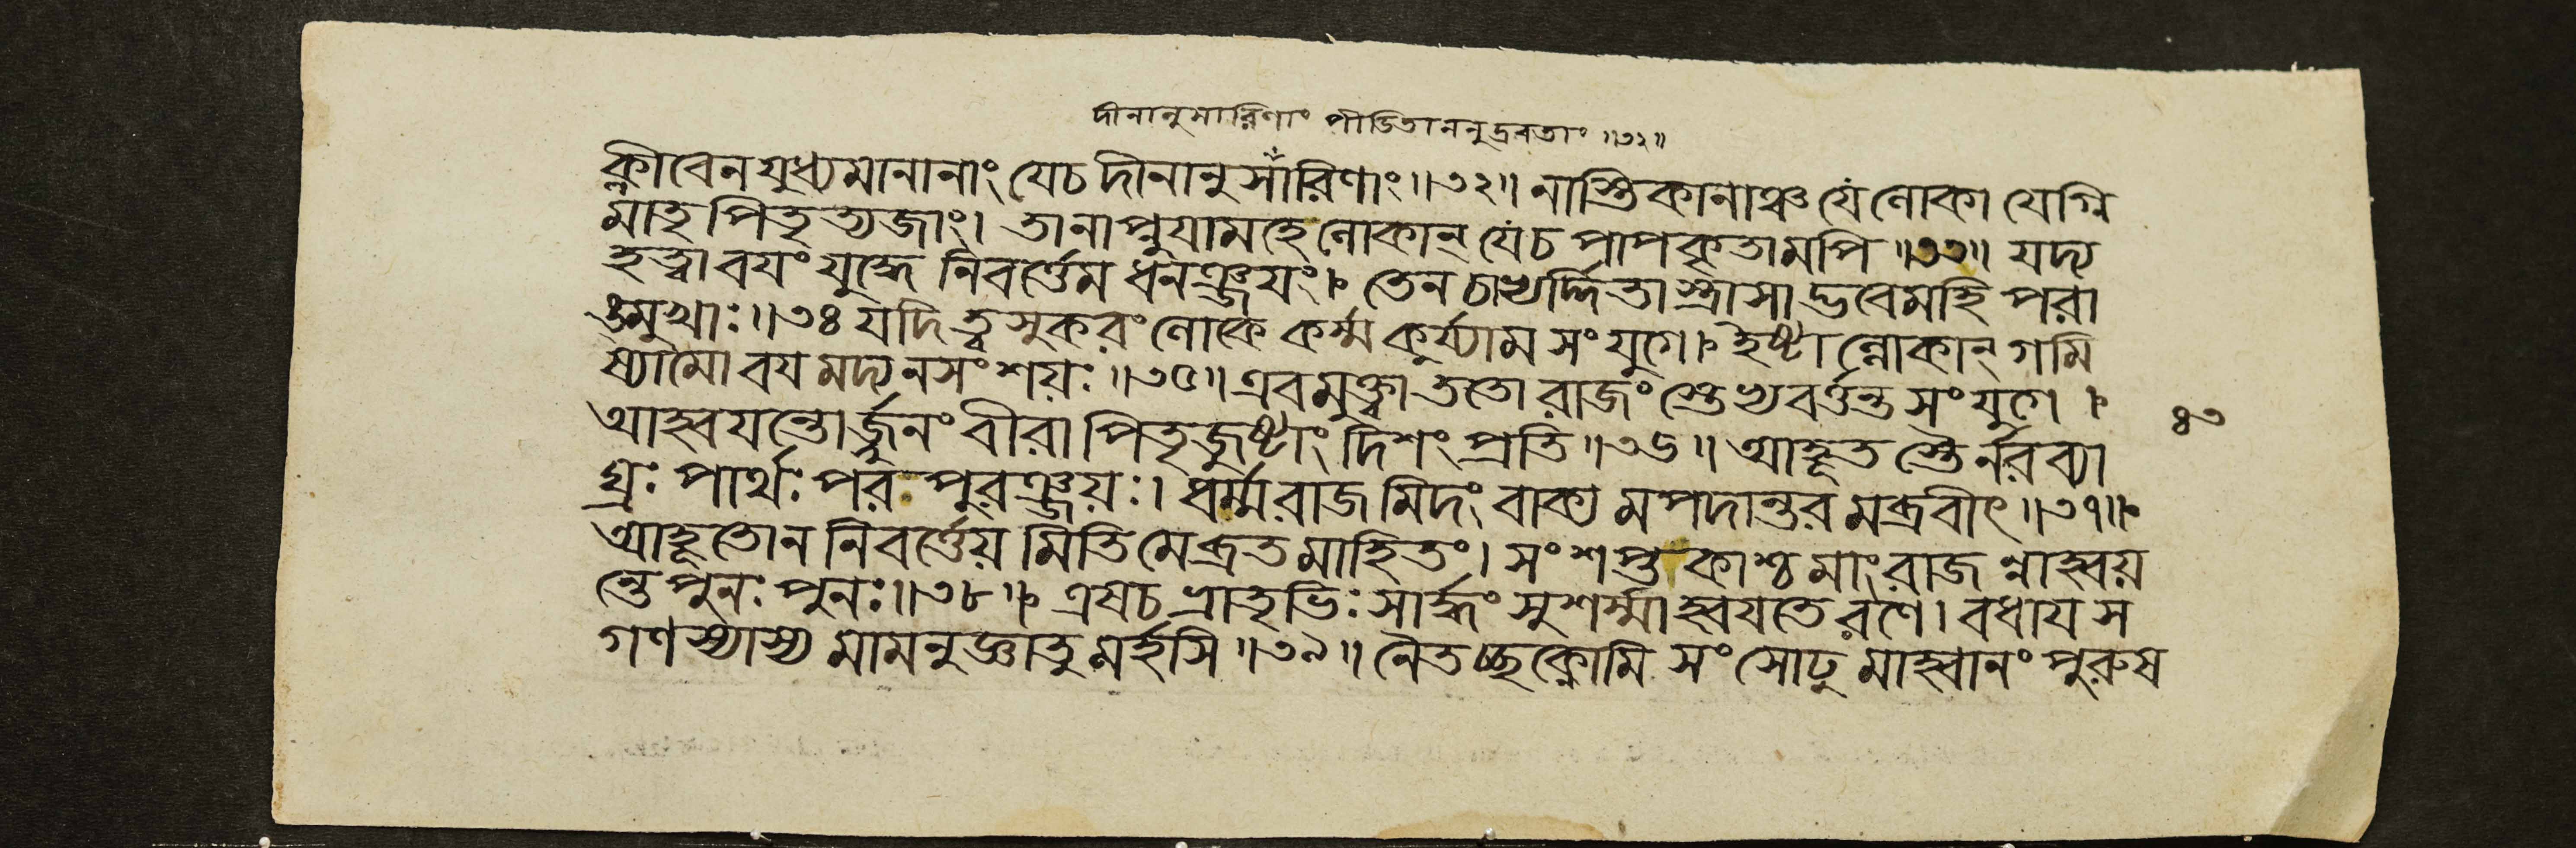 দীনানুসারিণাং পীডিতাননুদ্রবতাং ॥৩২॥
ক্লীবেন যুধ্যমানানাং যেচ দীনানুসারিণাং ॥৩২॥ নাস্তিকানাঞ্চ যে লোকা যেগ্নি
মাতৃপিতৃত্যজাং। তানাপ্নুযামহে লোকান্ যেচ পাপকৃতামপি ॥৩৩॥ যদ্য
হত্বা বযং যুদ্ধে নিবর্ত্তেম ধনঞ্জযং। তেন চাভ্যর্দ্দিতাস্ত্রাসাদ্ভবেমহি পরা
ঙ্মুখাঃ ॥৩৪ যদি ত্বসুকরং লোকে কর্ম্ম কুর্য্যাম সংযুগে। ইষ্টান্লোকান্ গমি
ষ্যামো বযমদ্য নসংশয়ঃ ॥৩৫॥ এবমুক্ত্বা ততো রাজংস্তেভ্যবর্ত্তন্ত সংযুগে।
আহ্বযন্তোর্জ্জুনং বীরা পিতৃজুষ্টাং দিশং প্রতি ॥৩৬॥ আহূতস্তৈর্নরব্যা ৪৩
ঘ্রঃ পার্থঃ পরপুরঞ্জয়ঃ। ধর্ম্মরাজমিদং বাক্যমপদান্তরমব্রবীৎ ॥৩৭॥
আহূতোন নিবর্ত্তেয়মিতি মেব্রতমাহিতং। সংশপ্তকাশ্চ মাং রাজন্নাহ্বয়
ন্তে পুনঃ পুনঃ ॥৩৮॥ এষচ ভ্রাতৃভিঃ সার্দ্ধং সুশর্ম্মাহ্বযতে রণে। বধায স
গণস্যাস্য মামনুজ্ঞাতুমর্হসি ॥৩৯॥ নৈতচ্ছক্নোমি সংসোঢুমাহ্বানং পুরুষ